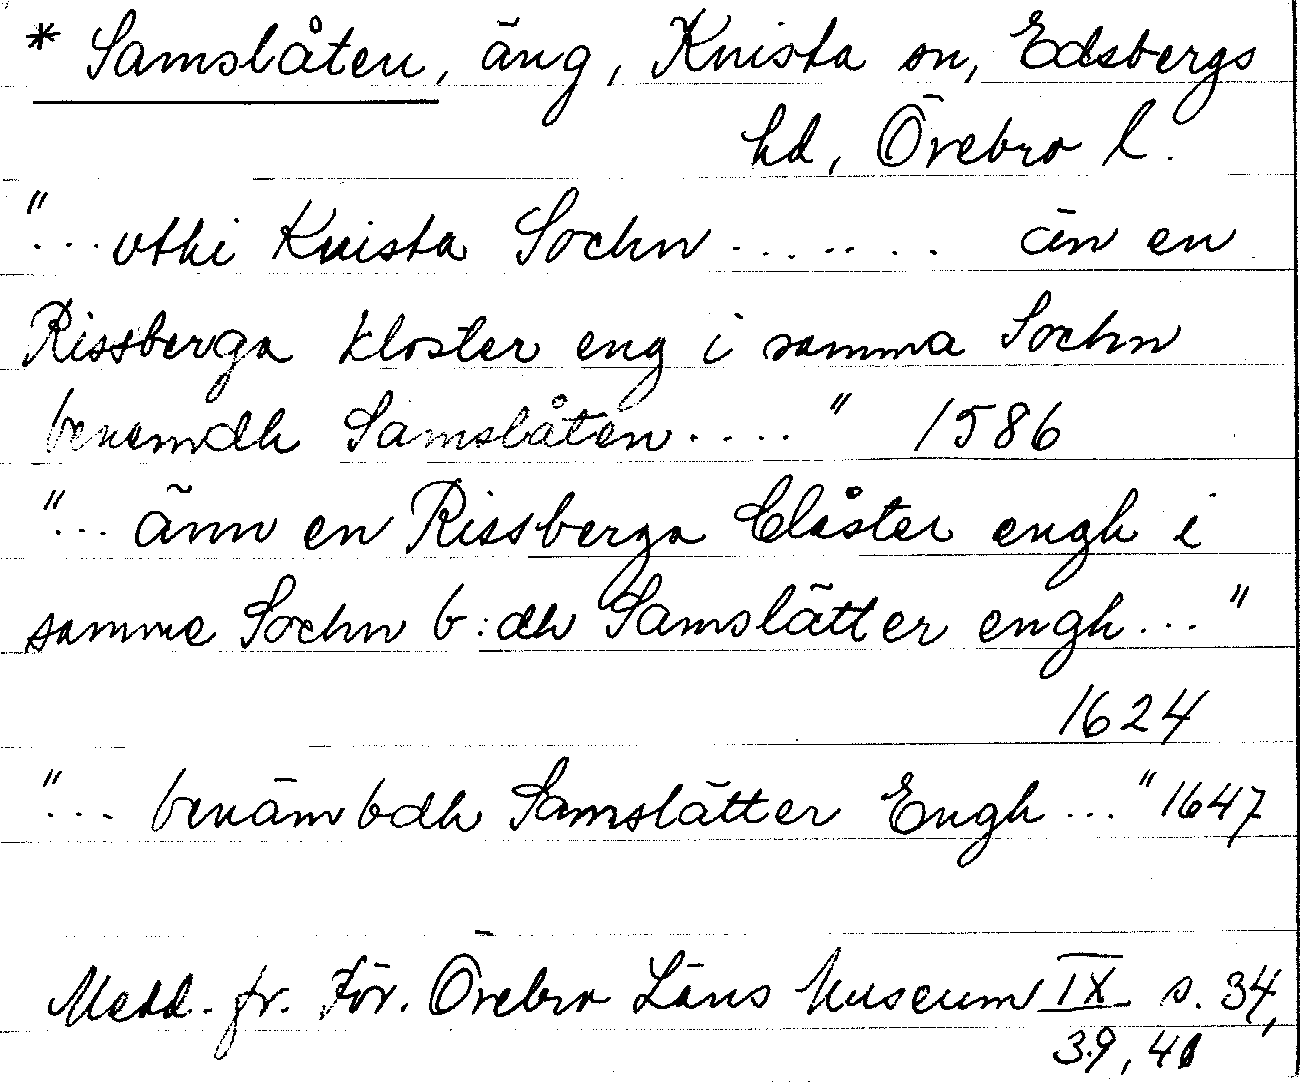 * Samslåten, äng, Knista sn, Edsbergs
hd, Örebro l.
"... vthi Knista Sochn ....... än en
Rissberga kloster eng i samma Sochn
benemdh Samslåten ...." 1586
"... änn en Rissberga Clåster engh i
samme Sochn b:dh Samslätter engh ..."
1624
"... benämbdh Samslätter Engh ..." 1647
Medd. fr. För. Örebro Läns Museum IX s. 34,
39, 41